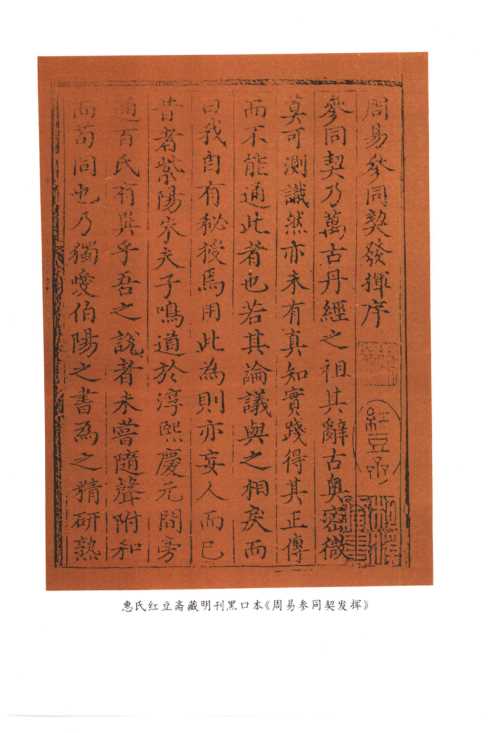 周易參同契發揮序
參同契乃萬古丹經之祖其辭古奧密微
莫可測識然亦未有真知實踐得其正傳
而不能通此者也若其論議與之相矣而
曰我自有秘授焉用此為則亦妄人而已
昔者紫陽朱夫子鳴道於淳熙慶元間旁
通百氏有異乎吾之說者未嘗隨聲附和
而苟同也乃獨愛伯陽之書為之精研熟
紅豆
惠氏红豆斋藏明刊黑口本《周易参同契发挥》